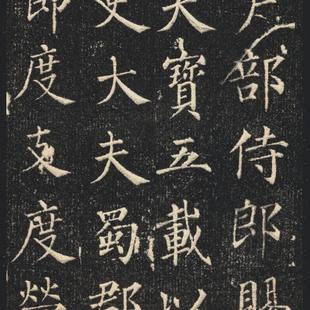 部侍郎賜
天寶五載以
史大夫蜀郡
節度支度營